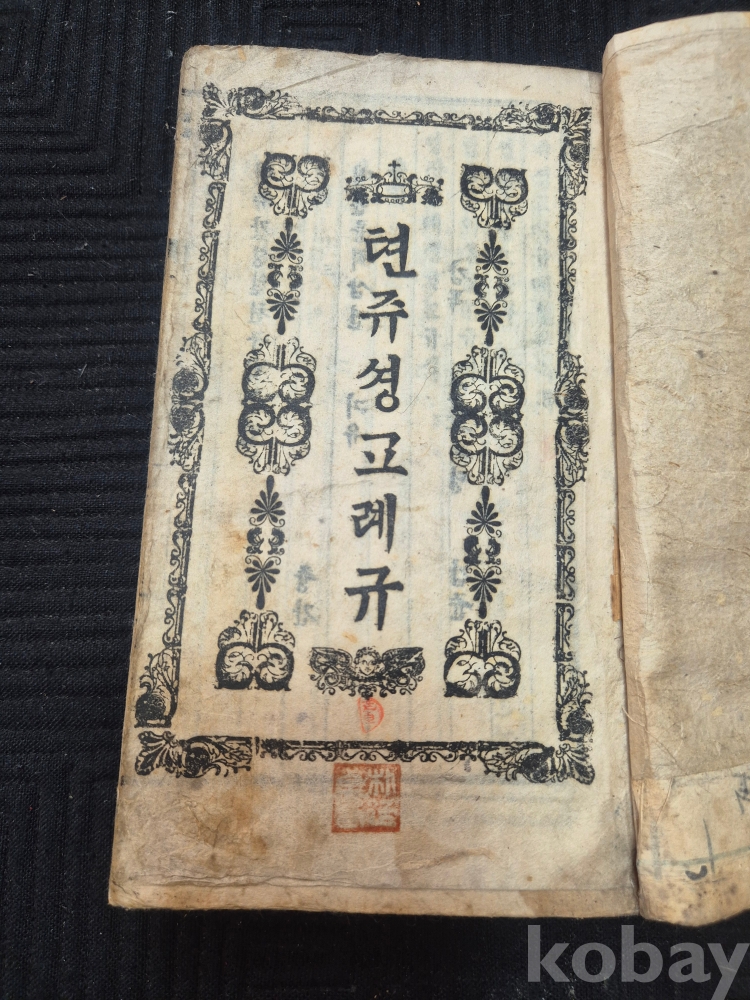 텬쥬셩고례규
kobay